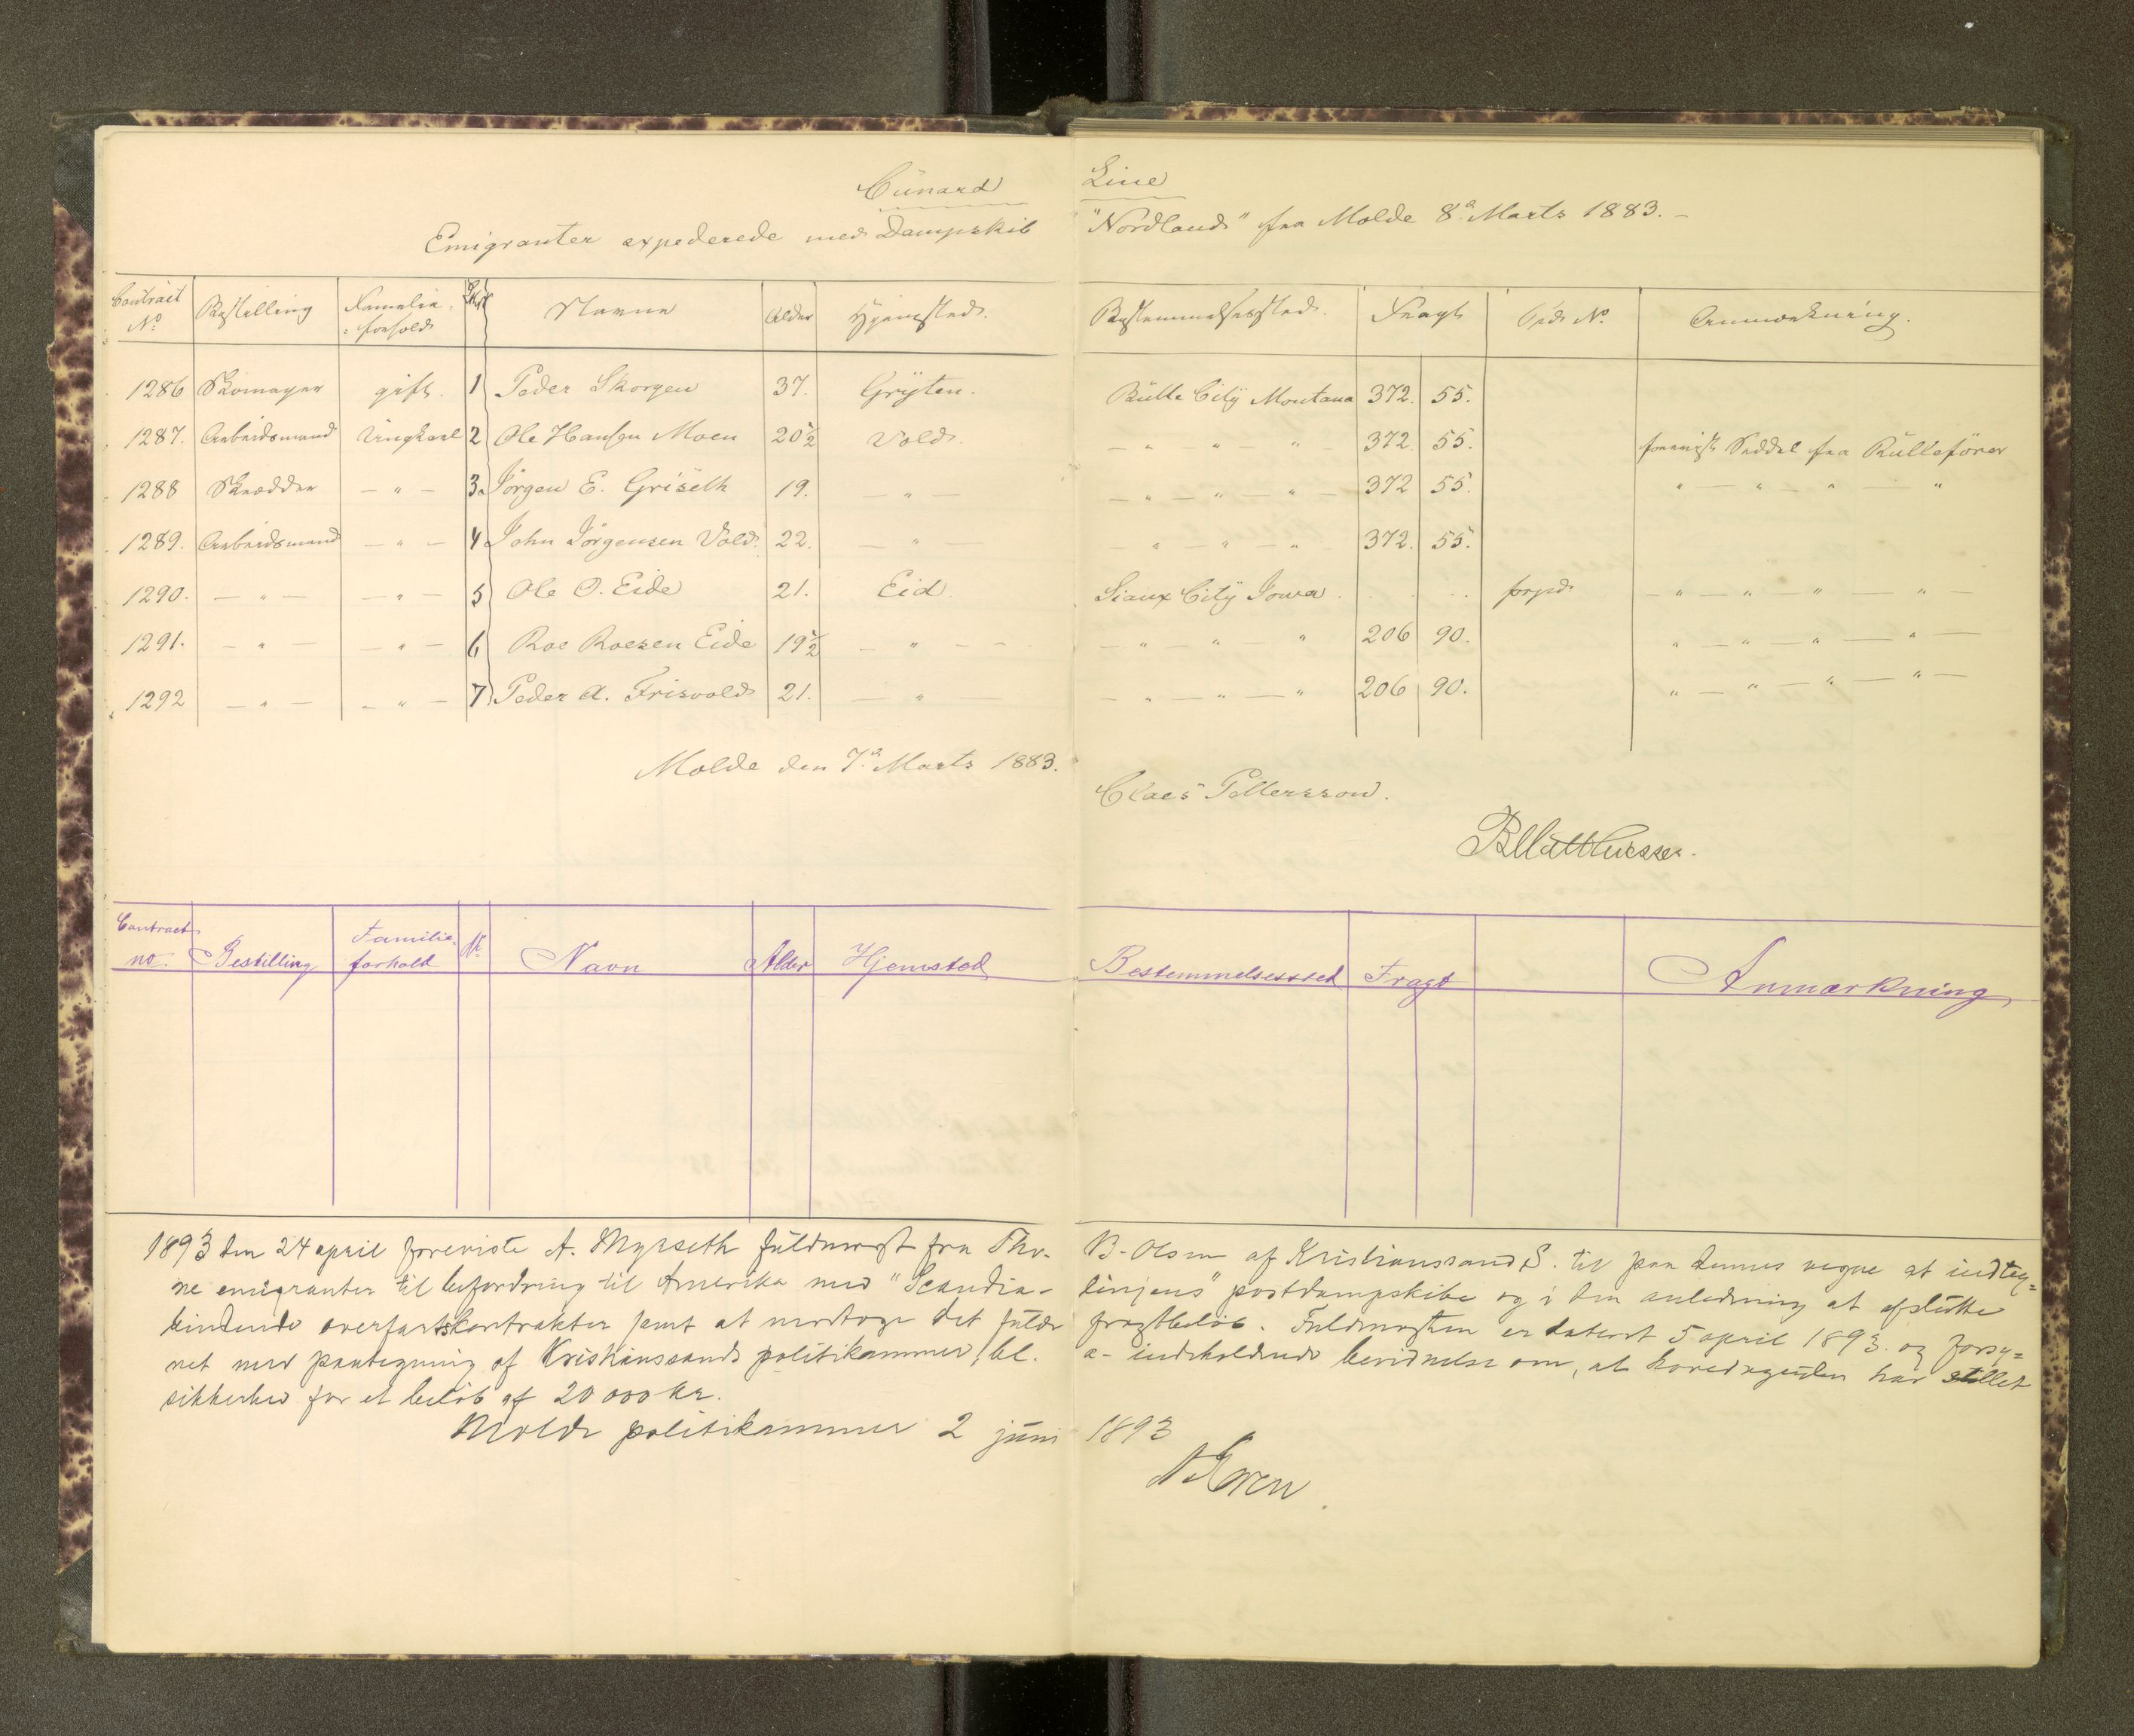 Cunard Line
Emigranter expederede med Dampskib "Nordland" fra Molde 8de Marts 1883. -
Contract No. Bestilling Familieforhold Navne Alder Hjemsted. Bestemmelsessted. Fragt No. Anmærkning.
1286 Skomager gift. 1 Peder Skorgen 37. Gryten. Butte City Montana 372. 55.
1287. Arbeidsmand Ungkarl 2 Ole Hansen Moen 20 1/2 Vold. - " - " - " 372 55. forevist Seddel fra Rullefører
1288 Skrædder - " - 3. Jörgen E. Griseth 19. - " - - " - " - " - 372 55. " - " - " - "
1289. Arbeidsmand - " - 4 John Jörgensen Vold. 22. - " - " - " - " 372. 55.
1290. - " - - " - 5 Ole O. Eide 21. Eid Siaux City Iowa . . . . prpd. - " - " - " - " -
1291. - " - - " - 6 Roe Roesen Eide 19 1/2 - " - - - " - " - " 206 90. " - " - " - " -
1292 - " - - " - 7 Peder A. Frisvold 21. - " - - " - " - " 206 90. " - " - " - " -
Molde den 7de Marts 1883. Claes Pettersson.
Contract no. Bestilling Familieforhold No. Navn Alder Hjemsted Bestemmelsessted Fragt Anmærkning
1893 den 24 april foreviste A. Myrseth fuldmagt fra Thv. B. Olsen af Kristianssand S. til paa dennes vegne at indteg=
ne emigranter til befordring til Amerika med "Scandia-linjens" postdampskibe og i den anledning at afslutte
bindende overfartskontrakter samt at modtage det fulde fragtbeløb. Fuldmagten er dateret 5 april 1893. og forsy=
net med paategning af Kristianssands politikammer, bl. a. indeholdende bevidnelse om, at hovedagenten har stillet
sikkerhed for et beløb af 20 000 kr.
Molde politikammer 2 juni 1893